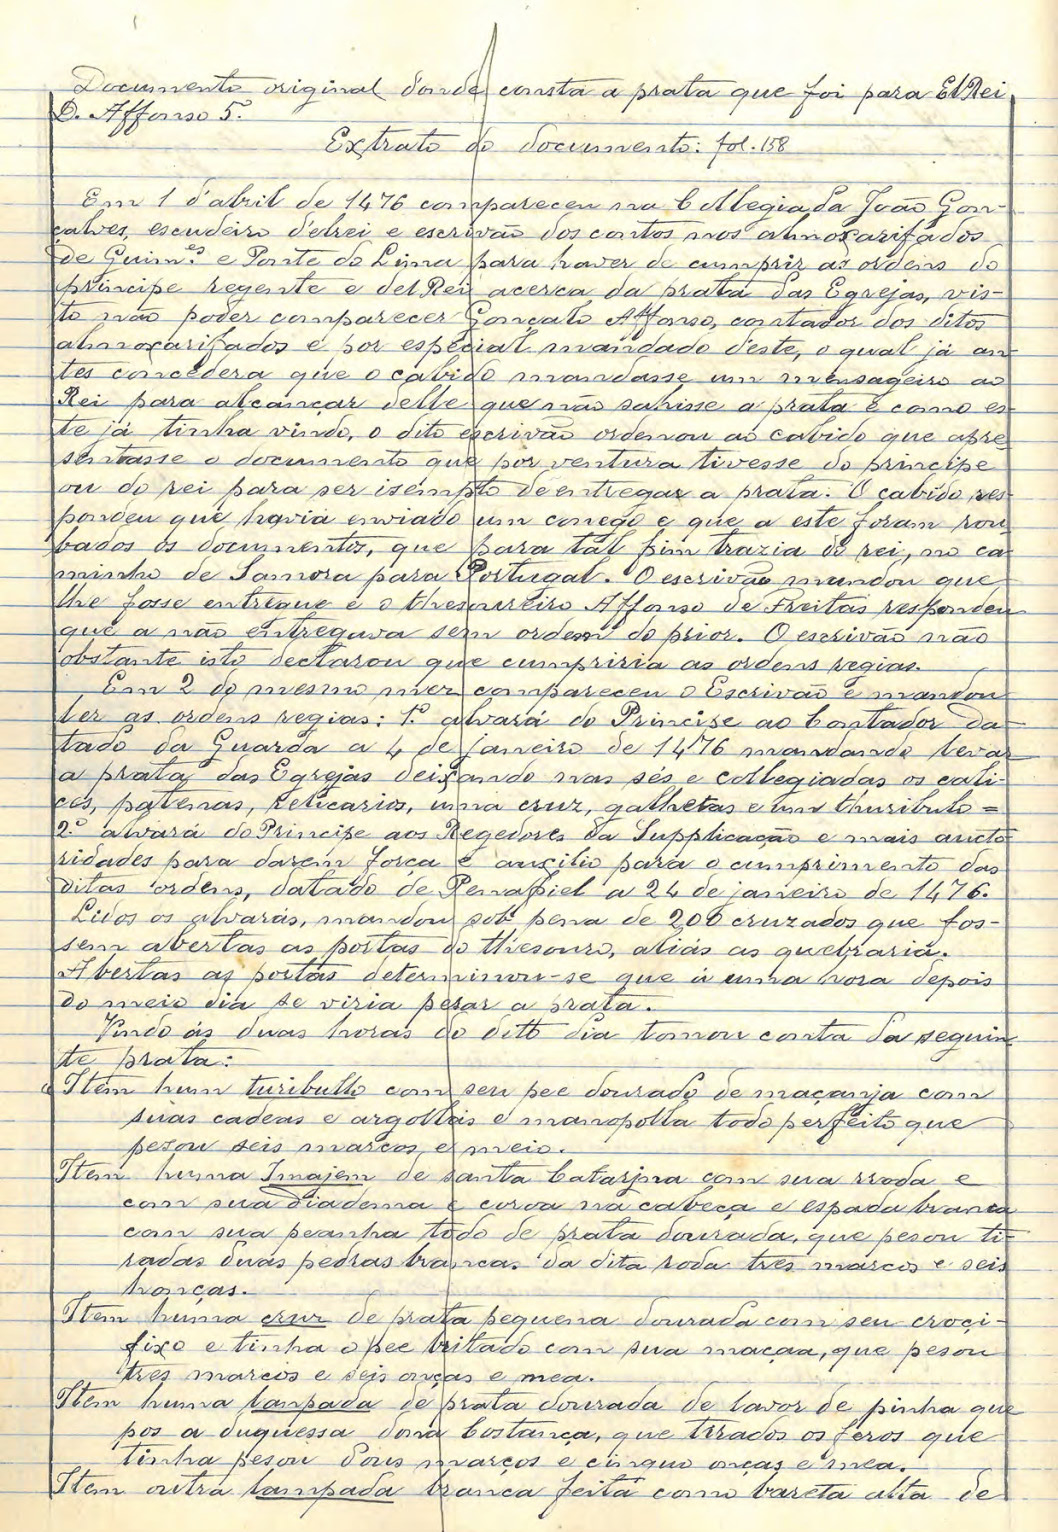 Documento original d'onde consta a prata que foi para El Rei
D. Affonso 5.º
Extrato do documento: fol. 158
Em 1 d'abril de 1476 compareceu na Collegiada João Gon-
çalves, escudeiro d'elrei e escrivão dos contos nos almoxarifados
de Guim.es e Ponte do Lima para haver de cumprir as ordens do
principe regente e del Rei acerca da prata das Egrejas, vis-
to não poder comparecer Gonçalo Affonso, contador dos ditos
almoxarifados e por especial mandado d'este, o qual já an-
tes concedera que o cabido mandasse um mensageiro ao
Rei para alcançar delle que não sahisse a prata e como es-
te já tinha vindo, o dito escrivão ordenou ao cabido que apre
sentasse o documento que por ventura tivesse do principe
ou do rei para ser isempto de entregar a prata. O cabido res-
pondeu que havia enviado um conego e que a este foram rou-
bados os documentos, que para tal fim trazia do rei, no ca-
minho de Samora para Portugal. O escrivão mandou que
lhe fosse entregue e o thesoureiro Affonso de Freitas respondeu
que a não entregava sem ordem do prior. O escrivão não
obstante isto declarou que cumpriria as ordens regias.
Em 2 do mesmo mez compareceu o Escrivão e mandou
ler as ordens regias: 1.º alvará do Principe ao Contador da-
tado da Guarda a 4 de janeiro de 1476 mandando levar
a prata das Egrejas deixando nas sés e collegiadas os cali-
ces, patenas, relicarios, uma cruz, galhetas e um thuribulo =
2.º alvará do Principe aos Regedores da Supplicação e mais aucto
ridades para darem força e auxilio para o cumprimento das
ditas ordens, datado de Penafiel a 24 de janeiro de 1476.
Lidos os alvarás, mandou sob pena de 200 cruzados que fos-
sem abertas as portas do thesouro, aliás as quebraria.
Abertas as portas determinou-se que á uma hora depois
do meio dia se viria pesar a prata.
Vindo ás duas horas do dito dia tomou conta da seguin
te prata:
Item hum turibullo com seu pee dourado de maçanja com
suas cadeas e argollas e manopolla todo perfeito que
pesou seis marcos e meio.
Item huma Imajem de santa Catarina com sua rroda e
com sua diadema e coroa na cabeça e espada branca
com sua peanha todo de prata dourada, que pesou ti-
radas duas pedras brancas da dita roda tres marcos e seis
honças.
Item huma cruz de prata pequena dourada com seu croçi-
fixo e tinha o pee britado com sua maçaa, que pesou
tres marcos e seis onças e mea.
Item huma lampada de prata dourada de lavor de pinha que
pos a duquessa dona Costança, que tirados os feros que
tinha pesou dous marcos e cinquo onças e mea.
Item outra lampada branca feita como bareta alta de